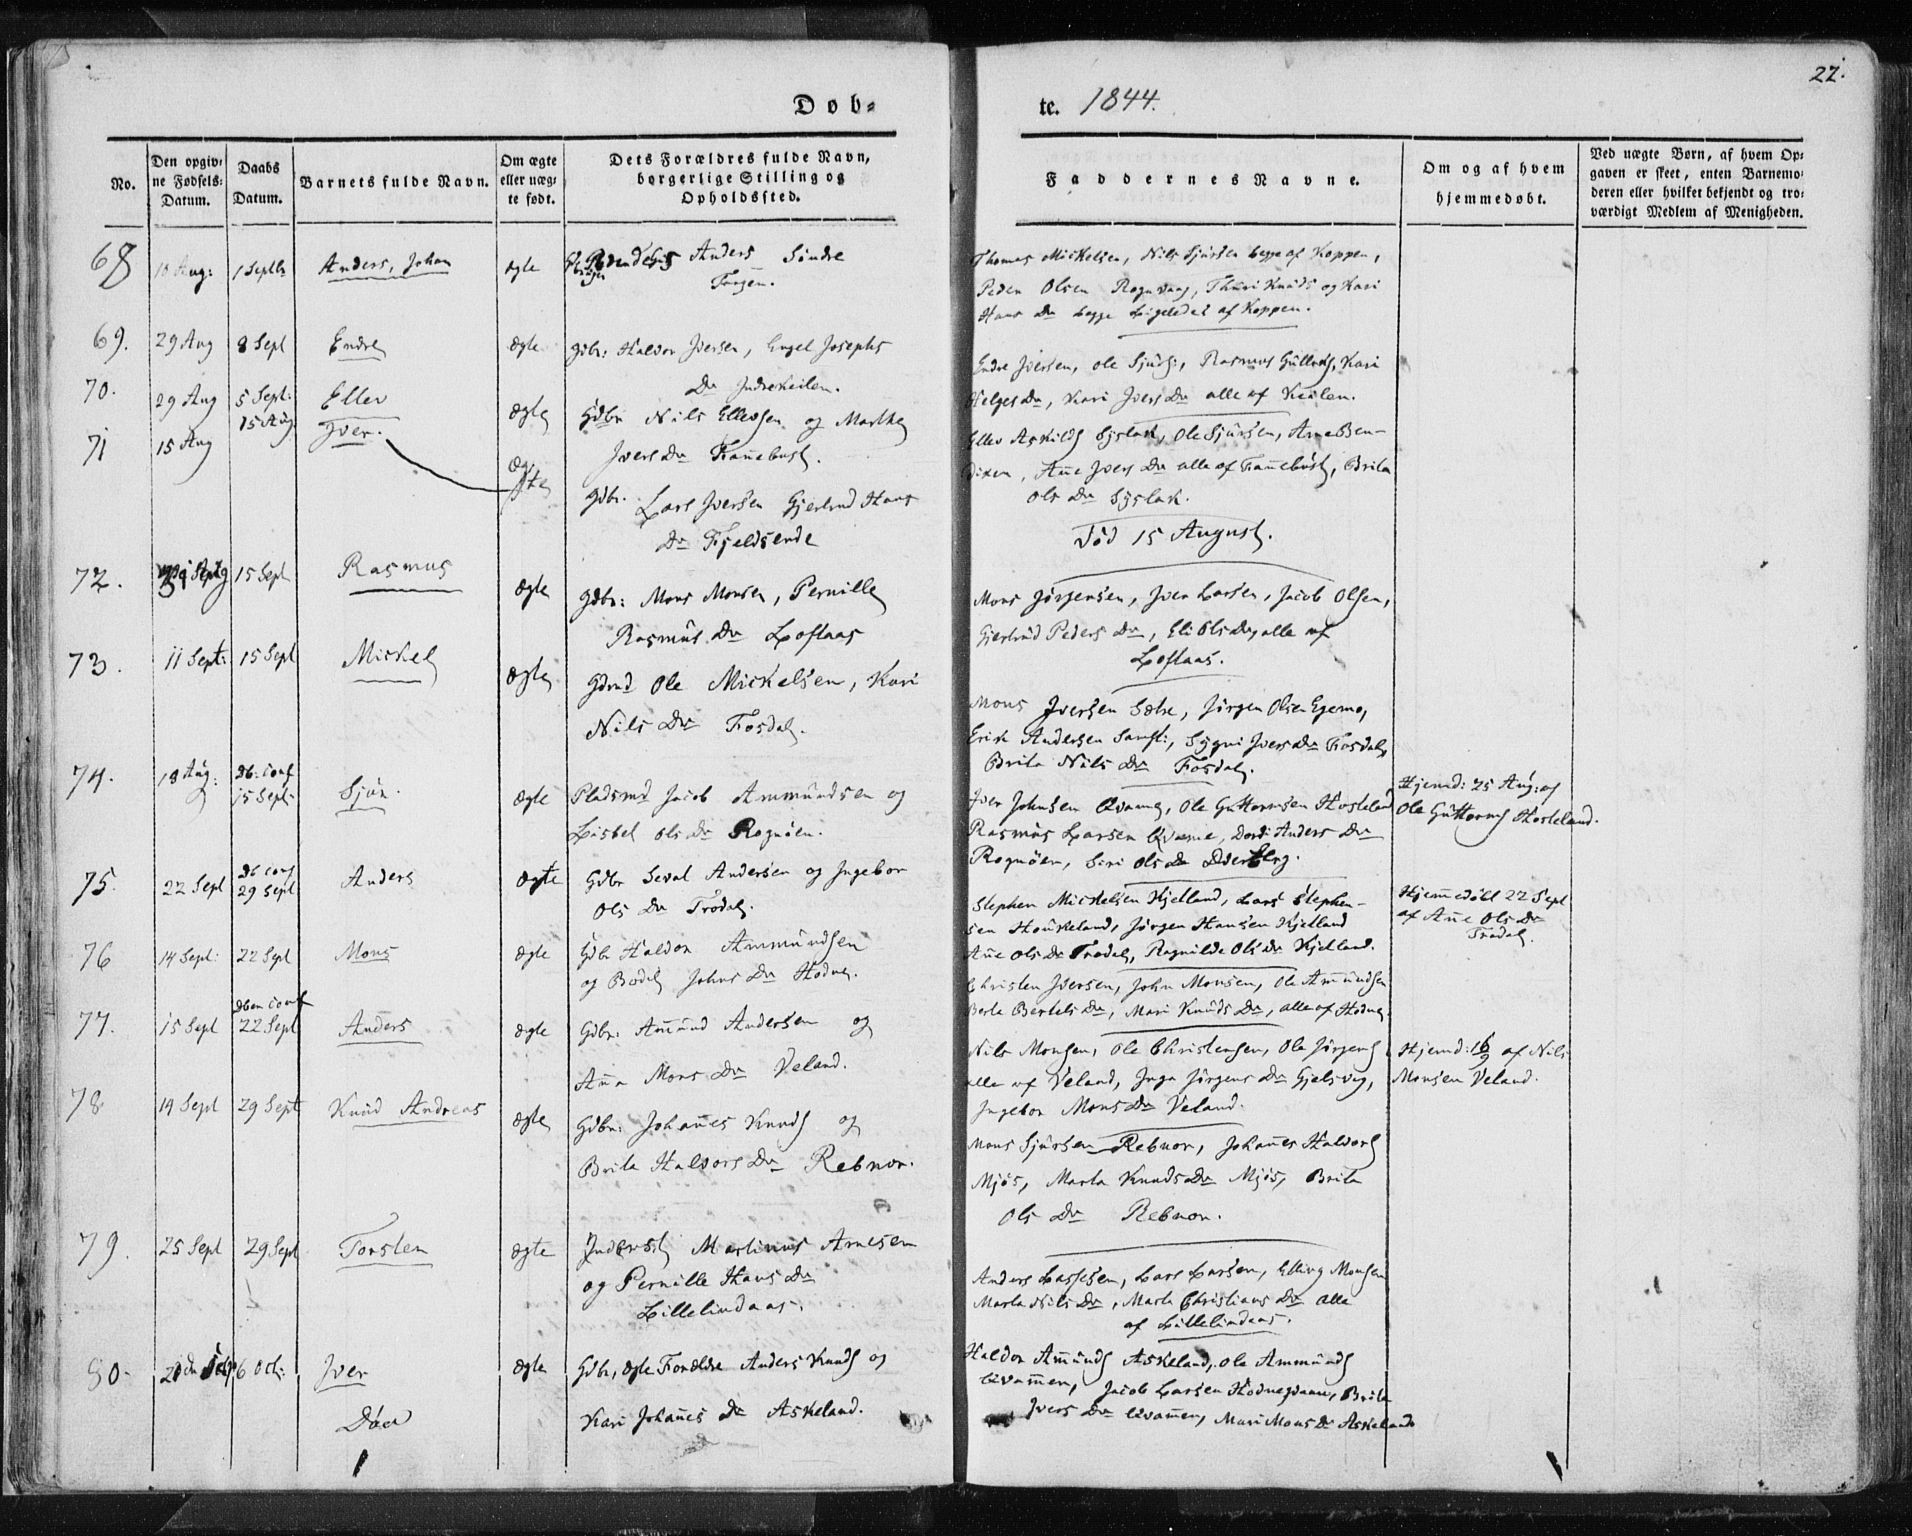 22.
Døb-
te. 1844.
No.
Den opgiv-
ne Fødsels-
Datum.
Daabs
Datum.
Barnets fulde Navn.
Om ægte
eller uæg-
te født.
Dets Forældres fulde Navn,
borgerlige Stilling og
Opholdssted.
Faddernes Navne.
Om og af hvem
hjemmedøbt.
Ved uægte Børn, af hvem Op-
gaven er skeet, enten Barnemo-
deren eller hvilket bekjendt og tro-
værdigt Medlem af Menigheden.
68 18 Aug: 1 Septbr Anders, Johan ægte Anders Søndre
Thomas Mickelsen, Nils Sjursen begge af Koppen,
Peder Olsen Rognvaag, Thuri Knuds og Kari
Hans Dr begge Ligeledes af Koppen.
69. 29 Aug 8 Sept Endre ægte Gdbr: Haldor Iversen, Engel Josephs
Dr Indrekeilen.
Endre Iversen, Ole Sjurds:, Rasmus Gulleds, Kari
Helges Dr, Kari Ivers Dr alle af Keilen.
70. 29 Aug 5 Sept: Ellev ægte Gdbr Nils Ellevsen og Marthe
Ivers Dr Fannebust.
Ellev Askilds Syslak, Ole Sjursen, Arne Ben-
dixen, Anne Ivers Dr alle af Fannebust, Brita
Ols Dr Syslak.
71 15 Aug 15 Aug Iver. ægte Gdbr. Lars Iversen Gjertrud Hans
Dr Fjeldsende
Død 15 August.
72. 15 Sept Rasmus ægte Gdbr: Mons Monsen, Pernille
Rasmus Dr Loftaas
Mons Jørgensen, Iver Larsen, Jacob Olsen,
Gjertrud Peders Dr, Eli Ols Dr, alle af
Loftaas.
73. 11 Sept: 15 Sept Mickel ægte Gdmd Ole Mickelsen, Kari
Nils Dr Fosdal.
Mons Iversen Sætre, Jørgen Olsen Egemo,
Erik Andersen Samst:, Sygni Ivers Dr Fosdal,
Brita Nils Dr Fosdal.
74. 18 Aug: Db: conf
15 Sept: Sjur. ægte Pladsmd Jacob Ammundsen og
Lisbet Ols Dr Rognøen.
Iver Johnsen Qvamme, Ole Guttormsen Hosteland
Rasmus Larsen Qvamme, Dordi Anders Dr
Rognøen, Siri Ols Dr
Hjemd: 25 Aug: af
Ole Guttorms Hosteland.
75. 22 Sept Db conf
29 Sept Anders ægte Gdbr Seval Andersen og Ingebor
Ols Dr Trodal.
Stephen Mickelsen Kjelland, Lars Stephen-
sen Houkeland, Jørgen Hansen Kjelland
Anne Ols Dr Trodal, Ragnilde Ols Dr Kjelland.
Hjemmedøbt 22 Sept
af Anne Ols Dr
Trodal.
76 14 Sept: 22 Sept Mons ægte Gdbr Haldor Ammundsen
og Bodel Johns Dr Hodne.
Christen Iversen, John Monsen, Ole Ammundsen
Berte Bertels Dr, Mari Knuds Dr, alle af Hodne.
77. 15 Sept Dben conf
22 Sept Anders ægte Gdbr: Amund Andersen og
Anna Mons Dr Veland.
Nils Monsen, Ole Christensen, Ole Jørgens
alle af Veland, Inga Jørgens Dr Gjelsvig,
Ingebor Mons Dr Veland.
Hjemd: 16/9 af Nils
Monsen Veland.
78 14 Sept 29 Sept Knud Andreas ægte Gdbr: Johannes Knuds og
Brita Halvors Dr Rebnor.
Mons Sjursen Rebnor, Johannes Halvors
Mjøs, Marta Knuds Dr Mjøs, Brita
Ols Dr Rebnor.
79. 25 Sept 29 Sept Torsten ægte Inderst Martinus Arnesen
og Pernille Hans Dr
Lillelindaas.
Anders Lassesen, Lars Larsen, Elling Monsen
Marta Nils Dr, Marta Christians Dr alle
af Lillelindaas.
80. 6 Oct: Iver ægte Gdbr, ægte Forældre Anders Knuds og
Kari Johannes Dr Askeland.
Død
Haldor Amunds Askeland, Ole Ammunds
Qvammen, Jacob Larsen Hodneqvam, Brita
Ivers Dr Qvammen, Mari Mons Dr Askeland